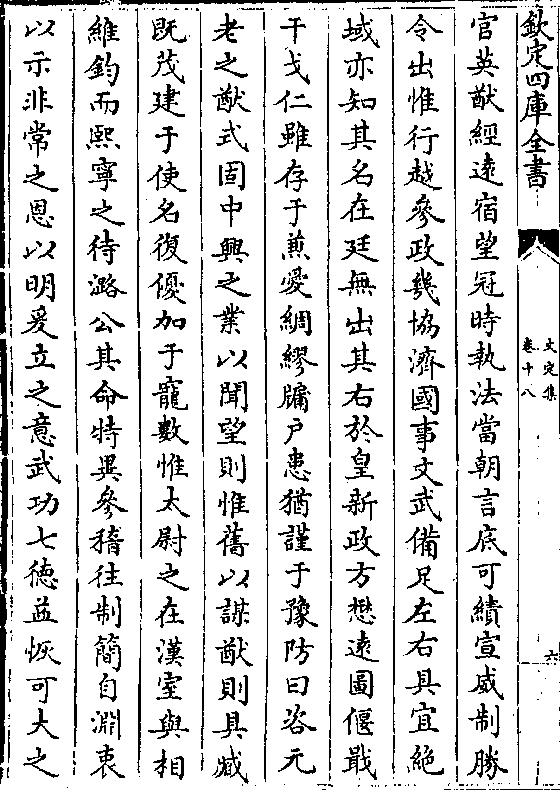 欽定四庫全書
文定集
卷十八
六
官英猷經遠宿望冠時執法當朝言底可績宣威制勝
令出惟行越參政幾協濟國事文武備足左右具宜絶
域亦知其名在廷無出其右於皇新政方懋遠圖偃戢
干戈仁雖存于兼愛綢繆牖户患猶謹于豫防曰咨元
老之猷式固中興之業以聞望則惟舊以謀猷則具臧
既茂建于使名復優加于寵數惟太尉之在漢室與相
維鈞而熙寧之待潞公其命特異參稽往制簡自淵衷
以示非常之恩以明爰立之意武功七德益恢可大之